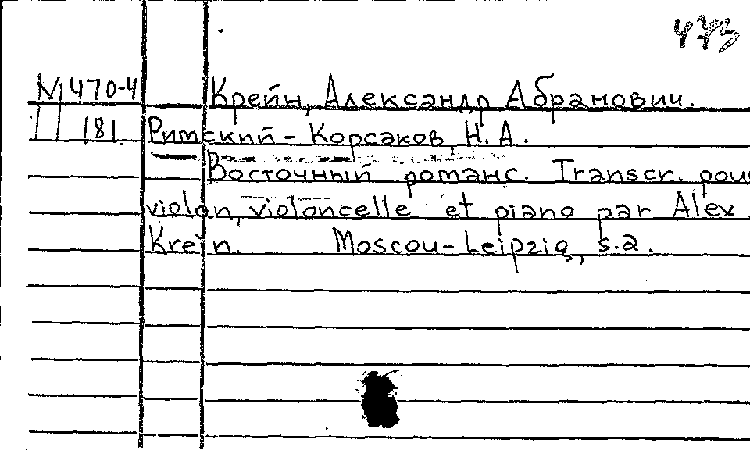 473
N 470-4 Крейн, Александр Абрамович.
181 Римский-Корсаков, Н.А.
Восточный романс. Transcr. pour
violon, violoncelle et piano par Alex
Krein. Moscou-Leipzig, s.a.